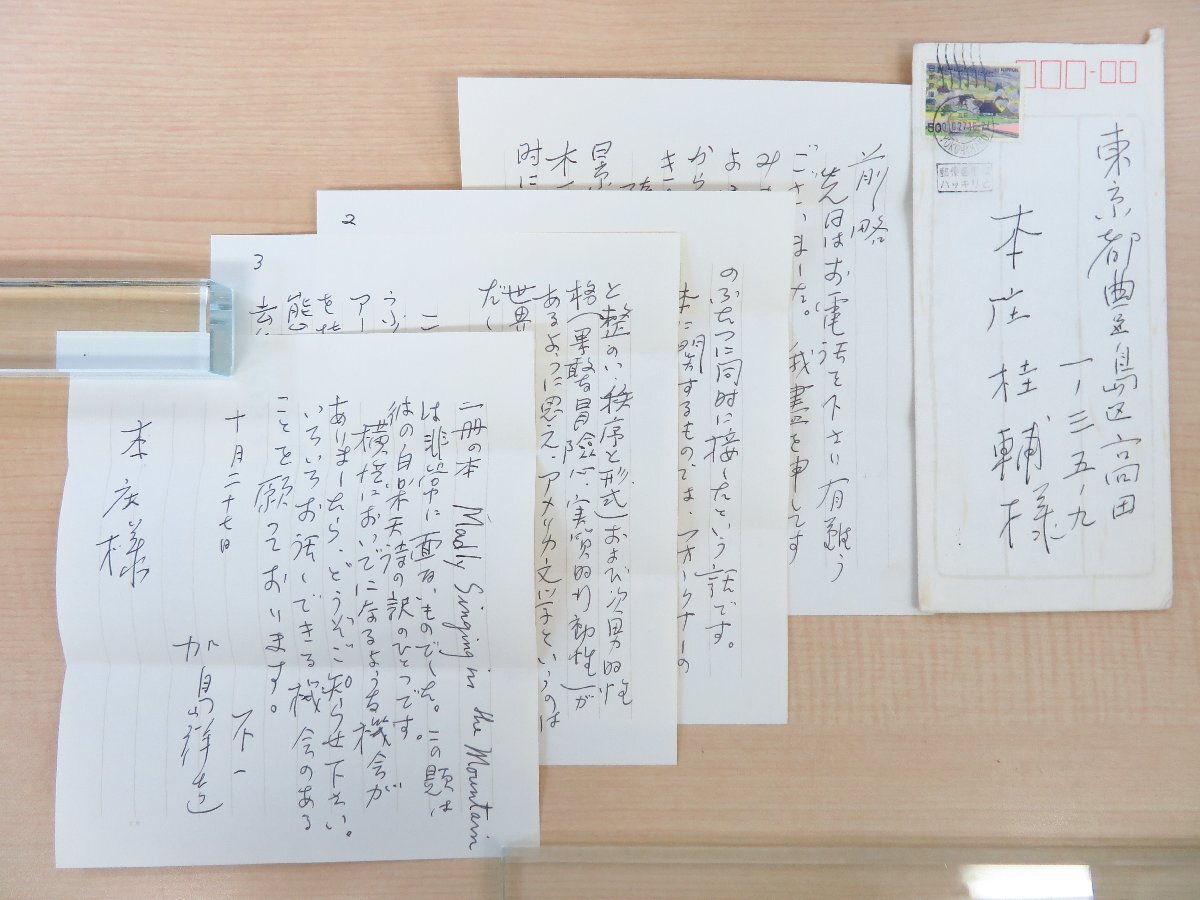 東京都豊島区高田
一ノ三五ノ九
本庄桂輔様
NIPPON
50
前略
先日はお電話を下さり有難う
ございました。我儘を申してす
み
よ
から
き
景
木
時に
2
のふたつに同時に接したという話です。
本に関するものでは、フォークナーの
3
と整のい秩序と形式)および次男的性
格(果敢な冒険心、実質的行動性)が
あるように思え、アメリカ文学というのは
世界
だ
二
うぶ
アー
を
能
去
一冊の本 Madly Singing in the Mountain
は非常に面白いものでした。この題は
彼の白楽天詩の訳のひとつです。
横浜においでになるような機会が
ありましたら、どうぞご一報知らせ下さい。
いろいろお話しできる機会のある
ことを願っております。
不一
十月二十七日
加島祥造
本庄様